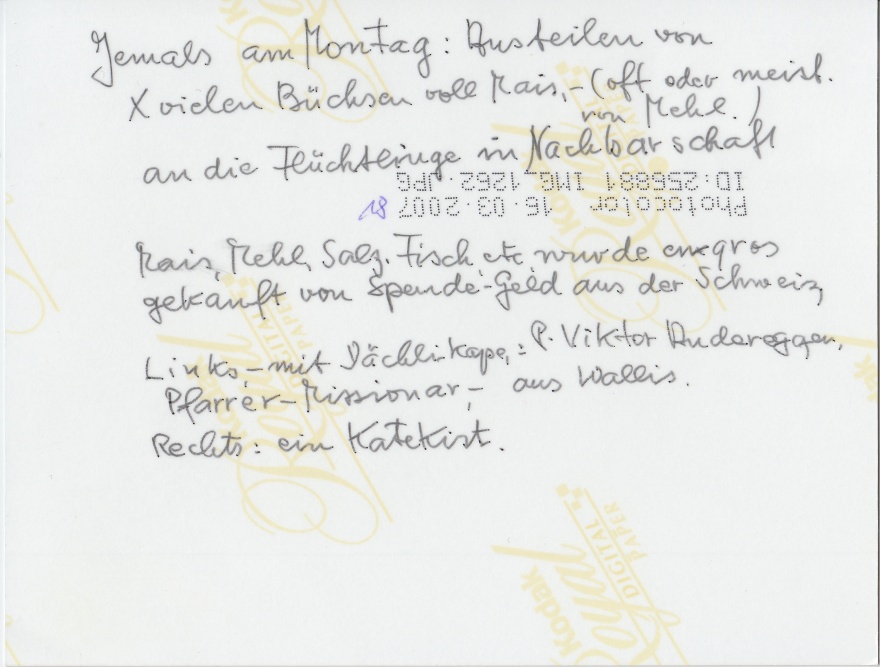 Jemals am Montag: Austeilen von
X vielen Büchsen voll Mais,- (oft oder meist.
von Mehl.)
an die Flüchtlinge in Nachbarschaft
ID:256881 IMG_1262.JPG
Photocolor 16.03.2007
18
Mais, Mehl, Salz. Fisch etc wurde engros
gekauft von Spende-Geld aus der Schweiz,
Links,- mit Dächlikape,: P. Viktor Andereggen,
Pfarrer-Missionar,- aus Wallis.
Rechts: ein Katekist.
Kodak
Royal
DIGITAL
PAPER